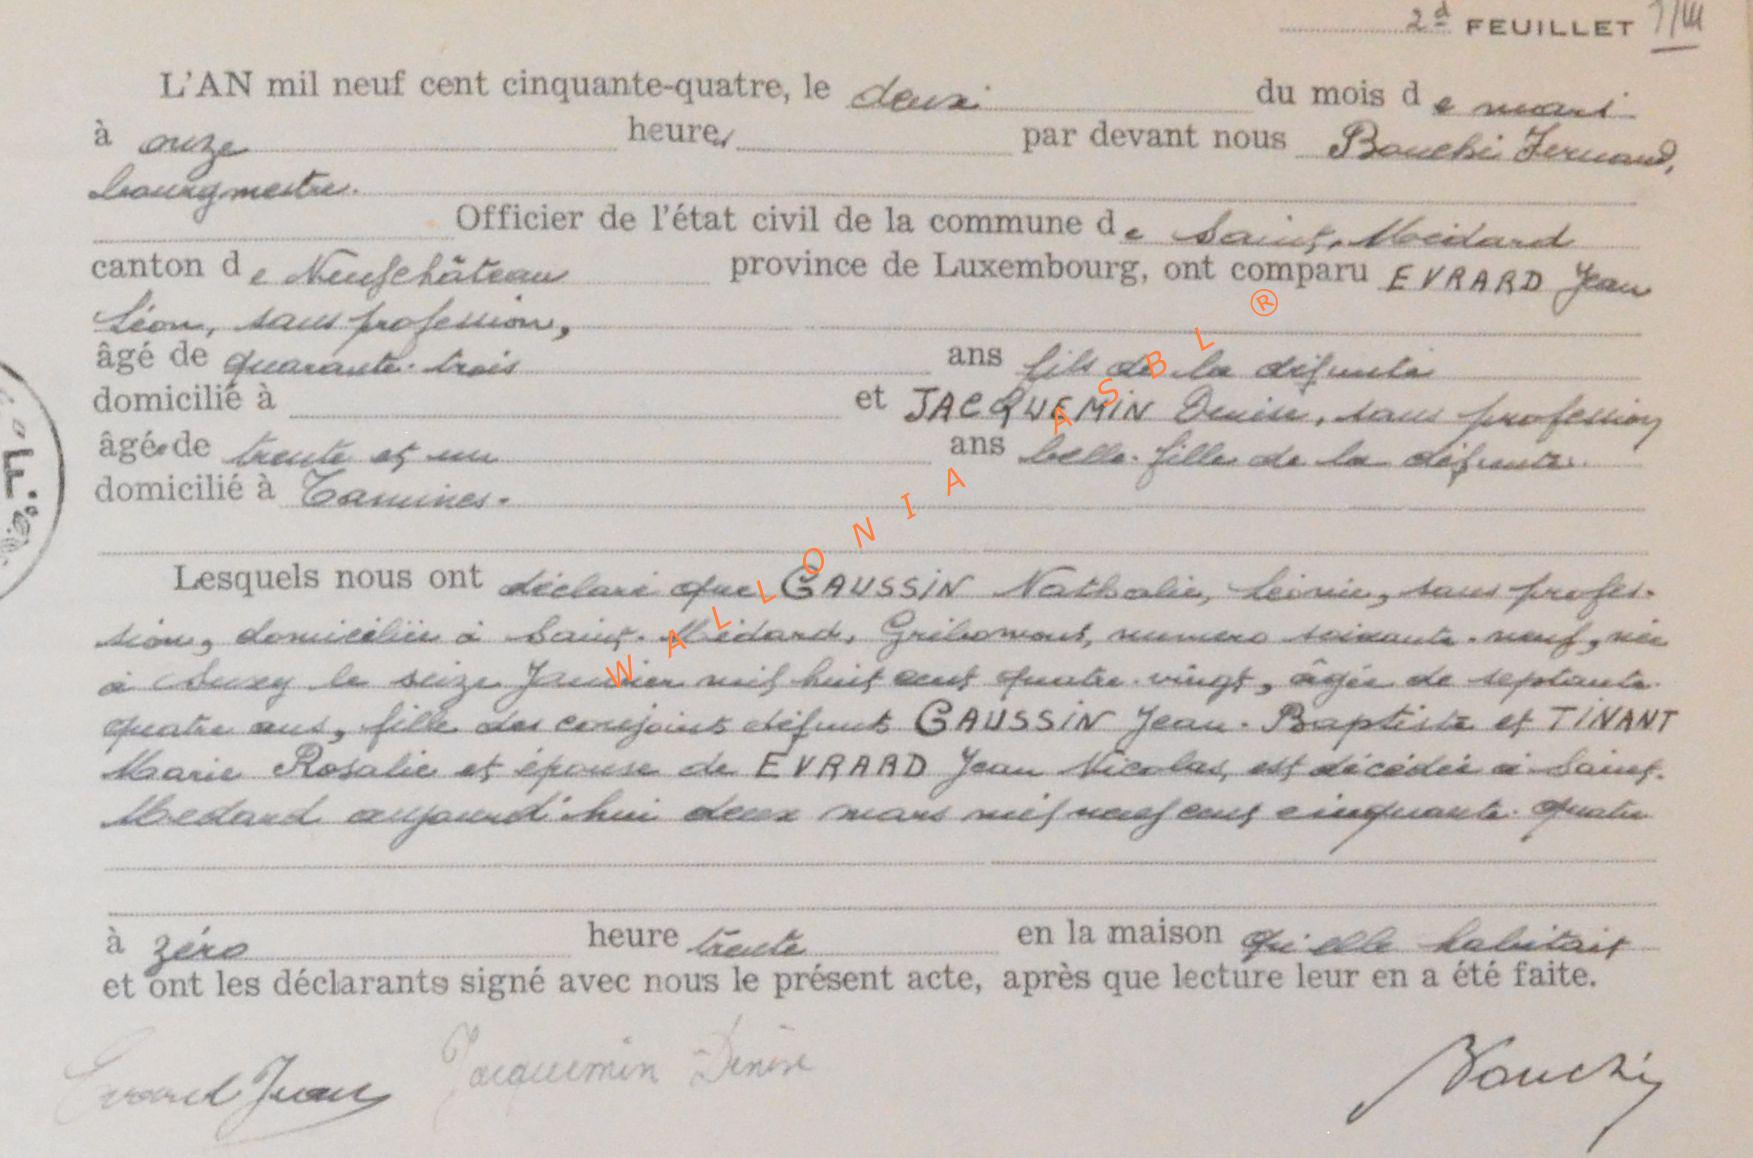 2d FEUILLET
L'AN mil neuf cent cinquante-quatre, le deux du mois de mars
à onze heures par devant nous Bouché Fernand,
bourgmestre.
Officier de l'état civil de la commune de Saint-Médard
canton de Neufchâteau province de Luxembourg, ont comparu EVRARD Jean
Léon, sans profession,
âgé de quarante-trois ans fils de la défunte
domicilié à et JACQUEMIN Denise, sans profession
âgée de trente et un ans belle-fille de la défunte
domicilié à Tamines.
Lesquels nous ont déclaré que GAUSSIN Nathalie, Léonie, sans profes-
sion, domiciliée à Saint-Médard, Gribomont, numéro soixante-neuf, née
à Suxy le seize Janvier mil huit cent quatre-vingt, âgée de septante-
quatre ans, fille des conjoints défunts GAUSSIN Jean-Baptiste et TINANT
Marie Rosalie et épouse de EVRARD Jean Nicolas, est décédée à Saint-
Médard aujourd'hui deux mars mil neuf cent cinquante-quatre
à zéro heure trente en la maison qu'elle habitait
et ont les déclarants signé avec nous le présent acte, après que lecture leur en a été faite.
Evrard Jean Jacquemin Denise Bouché
WALLONIA ASBL ®